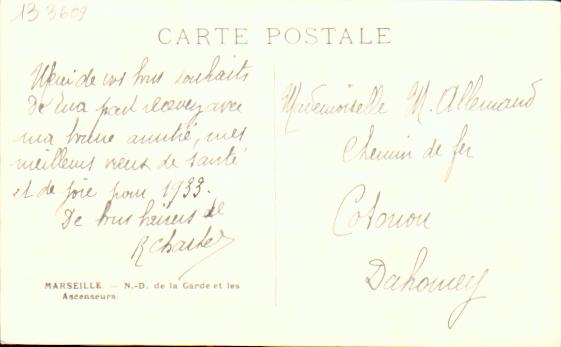 133609
CARTE POSTALE
Merci de vos bons souhaits
De ma part recevez avec
ma bonne amitié, mes
meilleurs vœux de santé
et de joie pour 1933.
De bons baisers de
R
Mademoiselle M. Allemand
Chemin de fer
Cotonou
Dahomey
MARSEILLE. — N.-D. de la Garde et les
Ascenseurs.